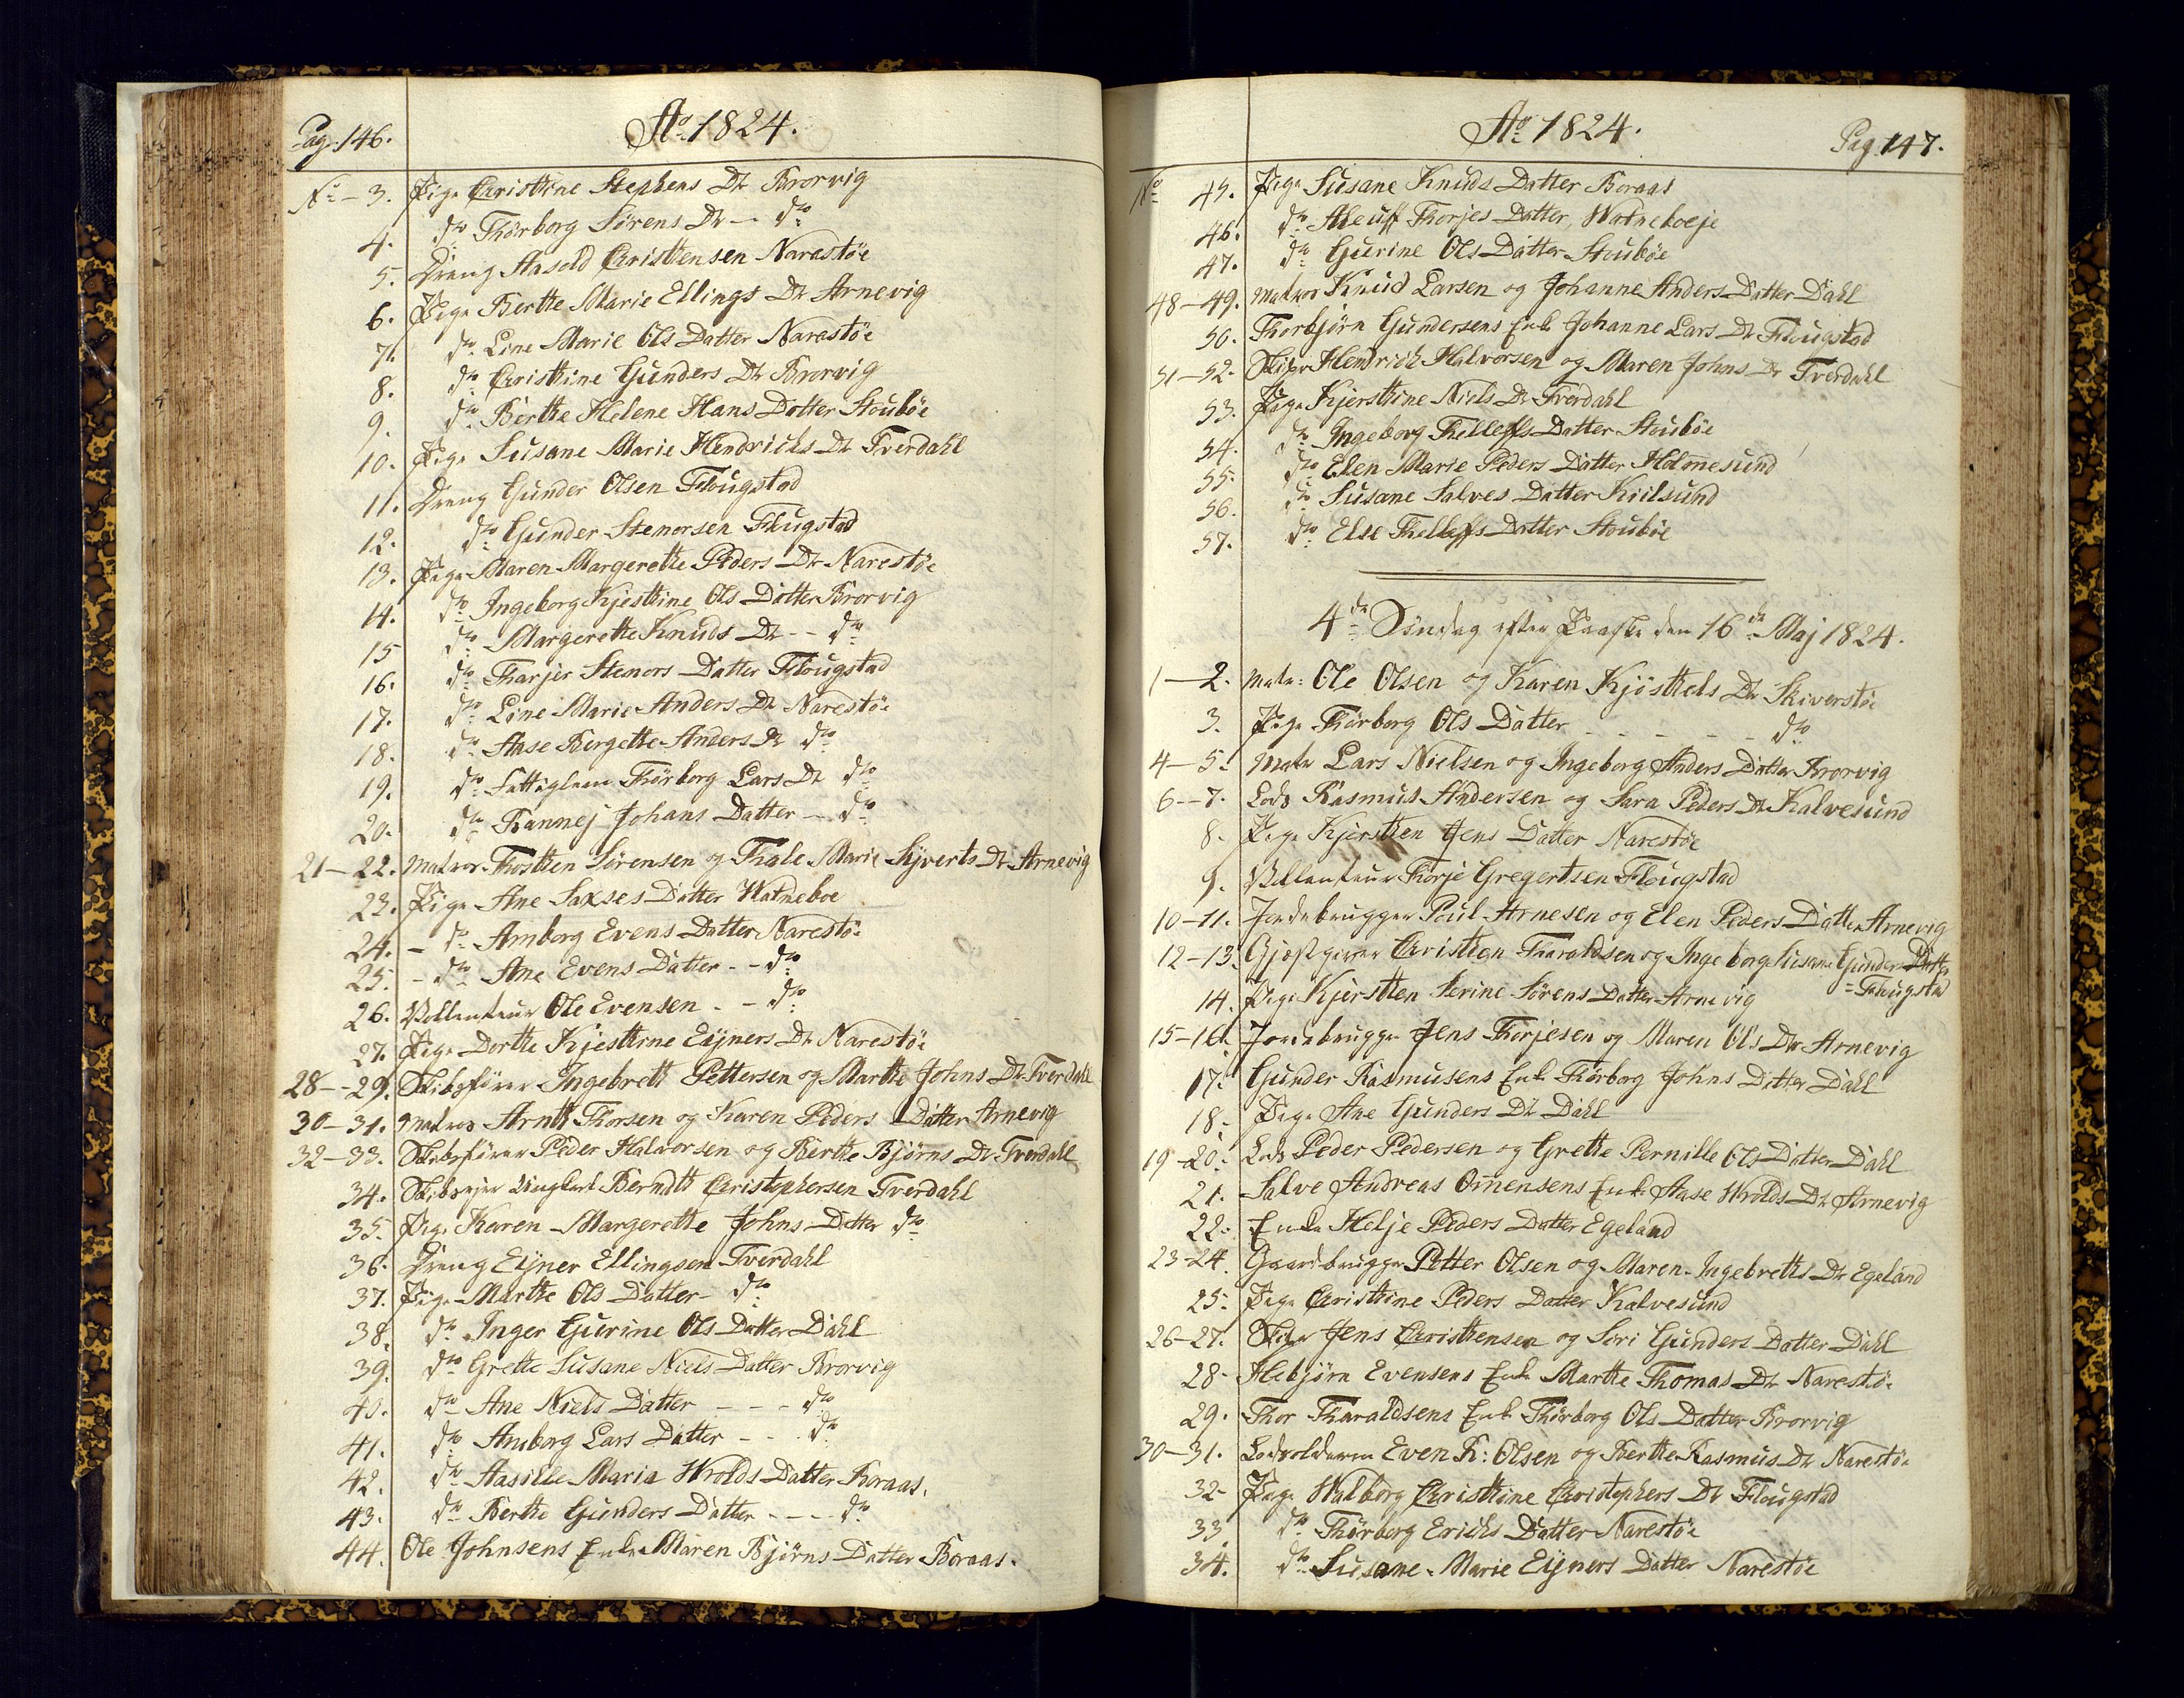 Pag. 146.
Ao 1824.
No - 3. Pige Christine Stephens Dtr Brorvig
4. do Thorborg Sørens Dtr - do
5. Dreng Aasold Christensen Narestøe
6. Pige Berthe Marie Ellings Dtr Arnevig
7. do Line Marie Ols Datter Narestøe
8. do Christine Gunders Dtr Brorvig
9. do Berthe Helene Hans Datter Stoubøe
10. Pige Susane Marie Hendrichs Dtr Tverdahl
11. Dreng Gunder Olsen Flougstad
12. do Gunder Stenersen Flougstad
13. Pige Maren Margerette Peders Dtr Narestøe
14. do Ingeborg Kjestine Ols Datter Brorvig
15 do Margerette Knuds Dtr - - do
16. do Tharjer Steners Datter Flougstad
17. do Line Marie Anders Dtr Narestøe
18. do Aase Bergette Anders Dtr do
19. do Fattiglem Thorborg Lars Dtr do
20. do Rannej Johans Datter - do
21-22. Matros Thosten Sørensen og Thale Marie Syverts Dtr Arnevig
23. Pige Ane Saxses Datter Watneboe
24. - do Amborg Evens Datter Narestøe
25. - do Ane Evens Datter - - do
26. Vollenteur Ole Evensen - - do
27. Pige Dorthe Kjestine Eyners Dtr Narestøe
28--29. Skibsfører Ingebrett Pettersen og Marthe Johns Dtr Tverdahl
30-31. Matros Arndt Thorsen og Karen Peders Datter Arnevig
32-33. Skibsfører Peder Halvorsen og Berthe Bjørns Dtr Tverdahl
34. Skibseyer Ungkarl Berndt Christophersen Tverdahl
35. Pige Karen Margerette Johns Datter do
36. Dreng Eyner Ellingsen Tverdahl
37. Pige Marthe Ols Datter - do
38. do Inger Gurine Ols Datter Dahl
39. do Grette Susane Niels Datter Brorvig
40. do Ane Niels Datter - - - do
41. do Amborg Lars Datter - - do
42. do Aasille Maria Wrolds Datter Boraas.
43. do Berthe Gunders Datter - - - do
44. Ole Johnsens Enke Maren Bjørns Datter Boraas.
Ao 1824.
Pag 147.
No 45. Pige Susane Knuds Datter Boraas
46. do Aleuff Thorjes Datter, Watneboeje
47. do Gurine Ols Datter Stoubøe
48-49. Matros Knud Larsen og Johanne Anders Datter Dahl
50. Thorbjørn Gundersens Enke Johanne Lars Dtr Flougstad
51-52. Skipr Hendrich Halvorsen og Maren Johns Dr Tverdahl
53. Pige Kjerstine Niels Dr Tverdahl
54. do Ingeborg Thelleffs Datter Stoubøe
55. do Elen Marie Peders Datter Holmesund
56. do Susane Salves Datter Kiilsund
57. do Else Thelleffs Datter Stoubøe
4de Søndag efter Paaske den 16de Maj 1824.
1-2. Matr: Ole Olsen og Karen Kjøstels Dtr Skiverstøe
3. Pige Thorborg Ols Datter - - - - - do
4-5. Matr Lars Nielsen og Ingeborg Anders Datter Brorvig
6--7. Lods Rasmus Andersen og Sara Peders Dtr Kalvesund
8. Pige Kjersten Jens Datter Narestøe
9. Vollenteur Thorje Gregertsen Flougstad
10-11. Jordebrugger Poul Arnesen og Elen Peders Datter Arnevig
12-13. Gjæstgiver Christen Tharaldsen og Ingeborg Susane Gunders Datter
= Flougstad
14. Pige Kjersten Serine Sørens Datter Arnevig
15-16. Jordebrugger Jens Thorjesen og Maren Ols Dtr Arnevig
17. Gunder Rasmusens Enke Thorborg Johns Datter Dahl
18. Pige Ane Gunders Dtr Dahl
19-20. Lods Peder Pedersen og Grette Pernille Ols Datter Dahl
21. Salve Andreas Omensens Enke Aase Wrolds Dtr Arnevig
22. Enke Helje Peders Datter Egeland
23-24. Gaardbrugger Petter Olsen og Maren Ingebretts Dtr Egeland
25. Pige Christine Peders Datter Kalvesund
26-27. Skipr Jens Christensen og Sori Gunders Datter Dahl
28- Abjørn Evensens Enke Marthe Thomas Dtr Narestøe
29. Thor Tharaldsens Enke Thorborg Ols Datter Brorvig
30-31. Lodsolderm Even R: Olsen og Berthe Rasmus Dtr Narestøe
32- Pige Walborg Christine Christophers Dtr Flougstad
33 do Thorborg Erichs Datter Narestøe
34. do Susane Marie Eyners Datter Narestøe